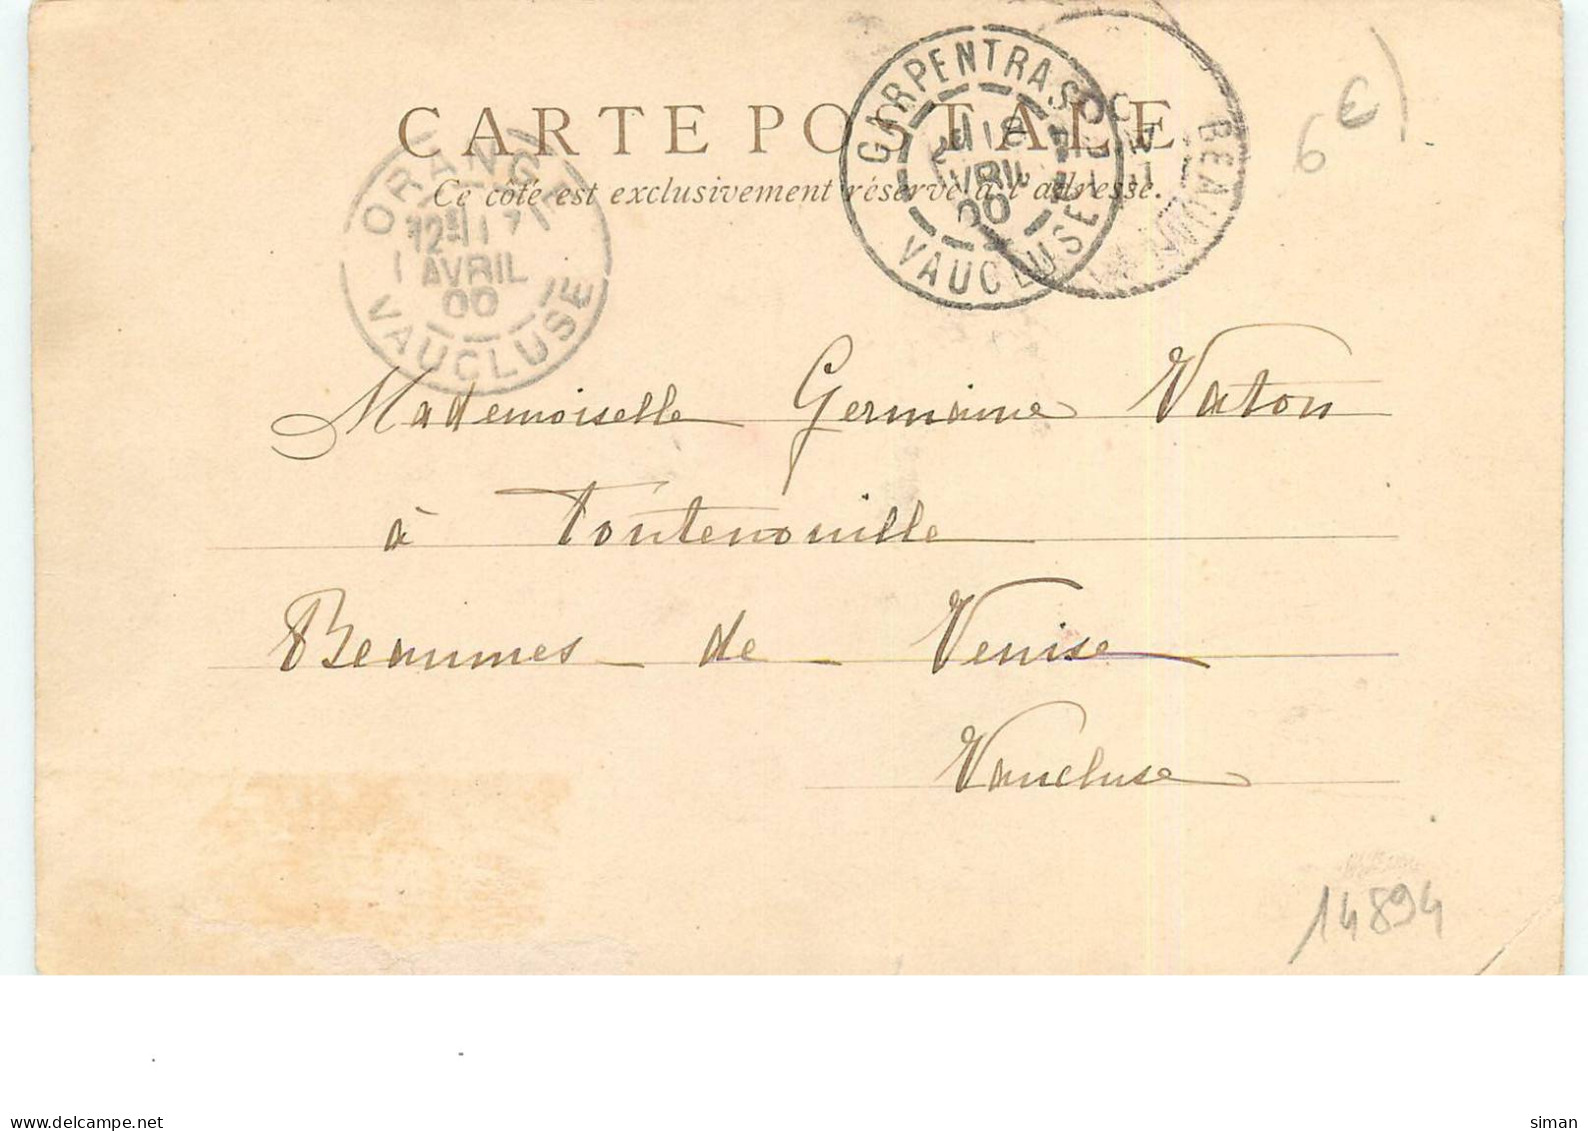 CARTE POSTALE
Ce côté est exclusivement réservé à l'adresse.
ORANGE
12 1 AVRIL 00
VAUCLUSE
CARPENTRAS
AVRIL 00
VAUCLUSE
BEAUM
6 €
Mademoiselle Germaine Vaton
à Fontenouille
Beaumes de Venise
Vaucluse
14894
www.delcampe.net
siman